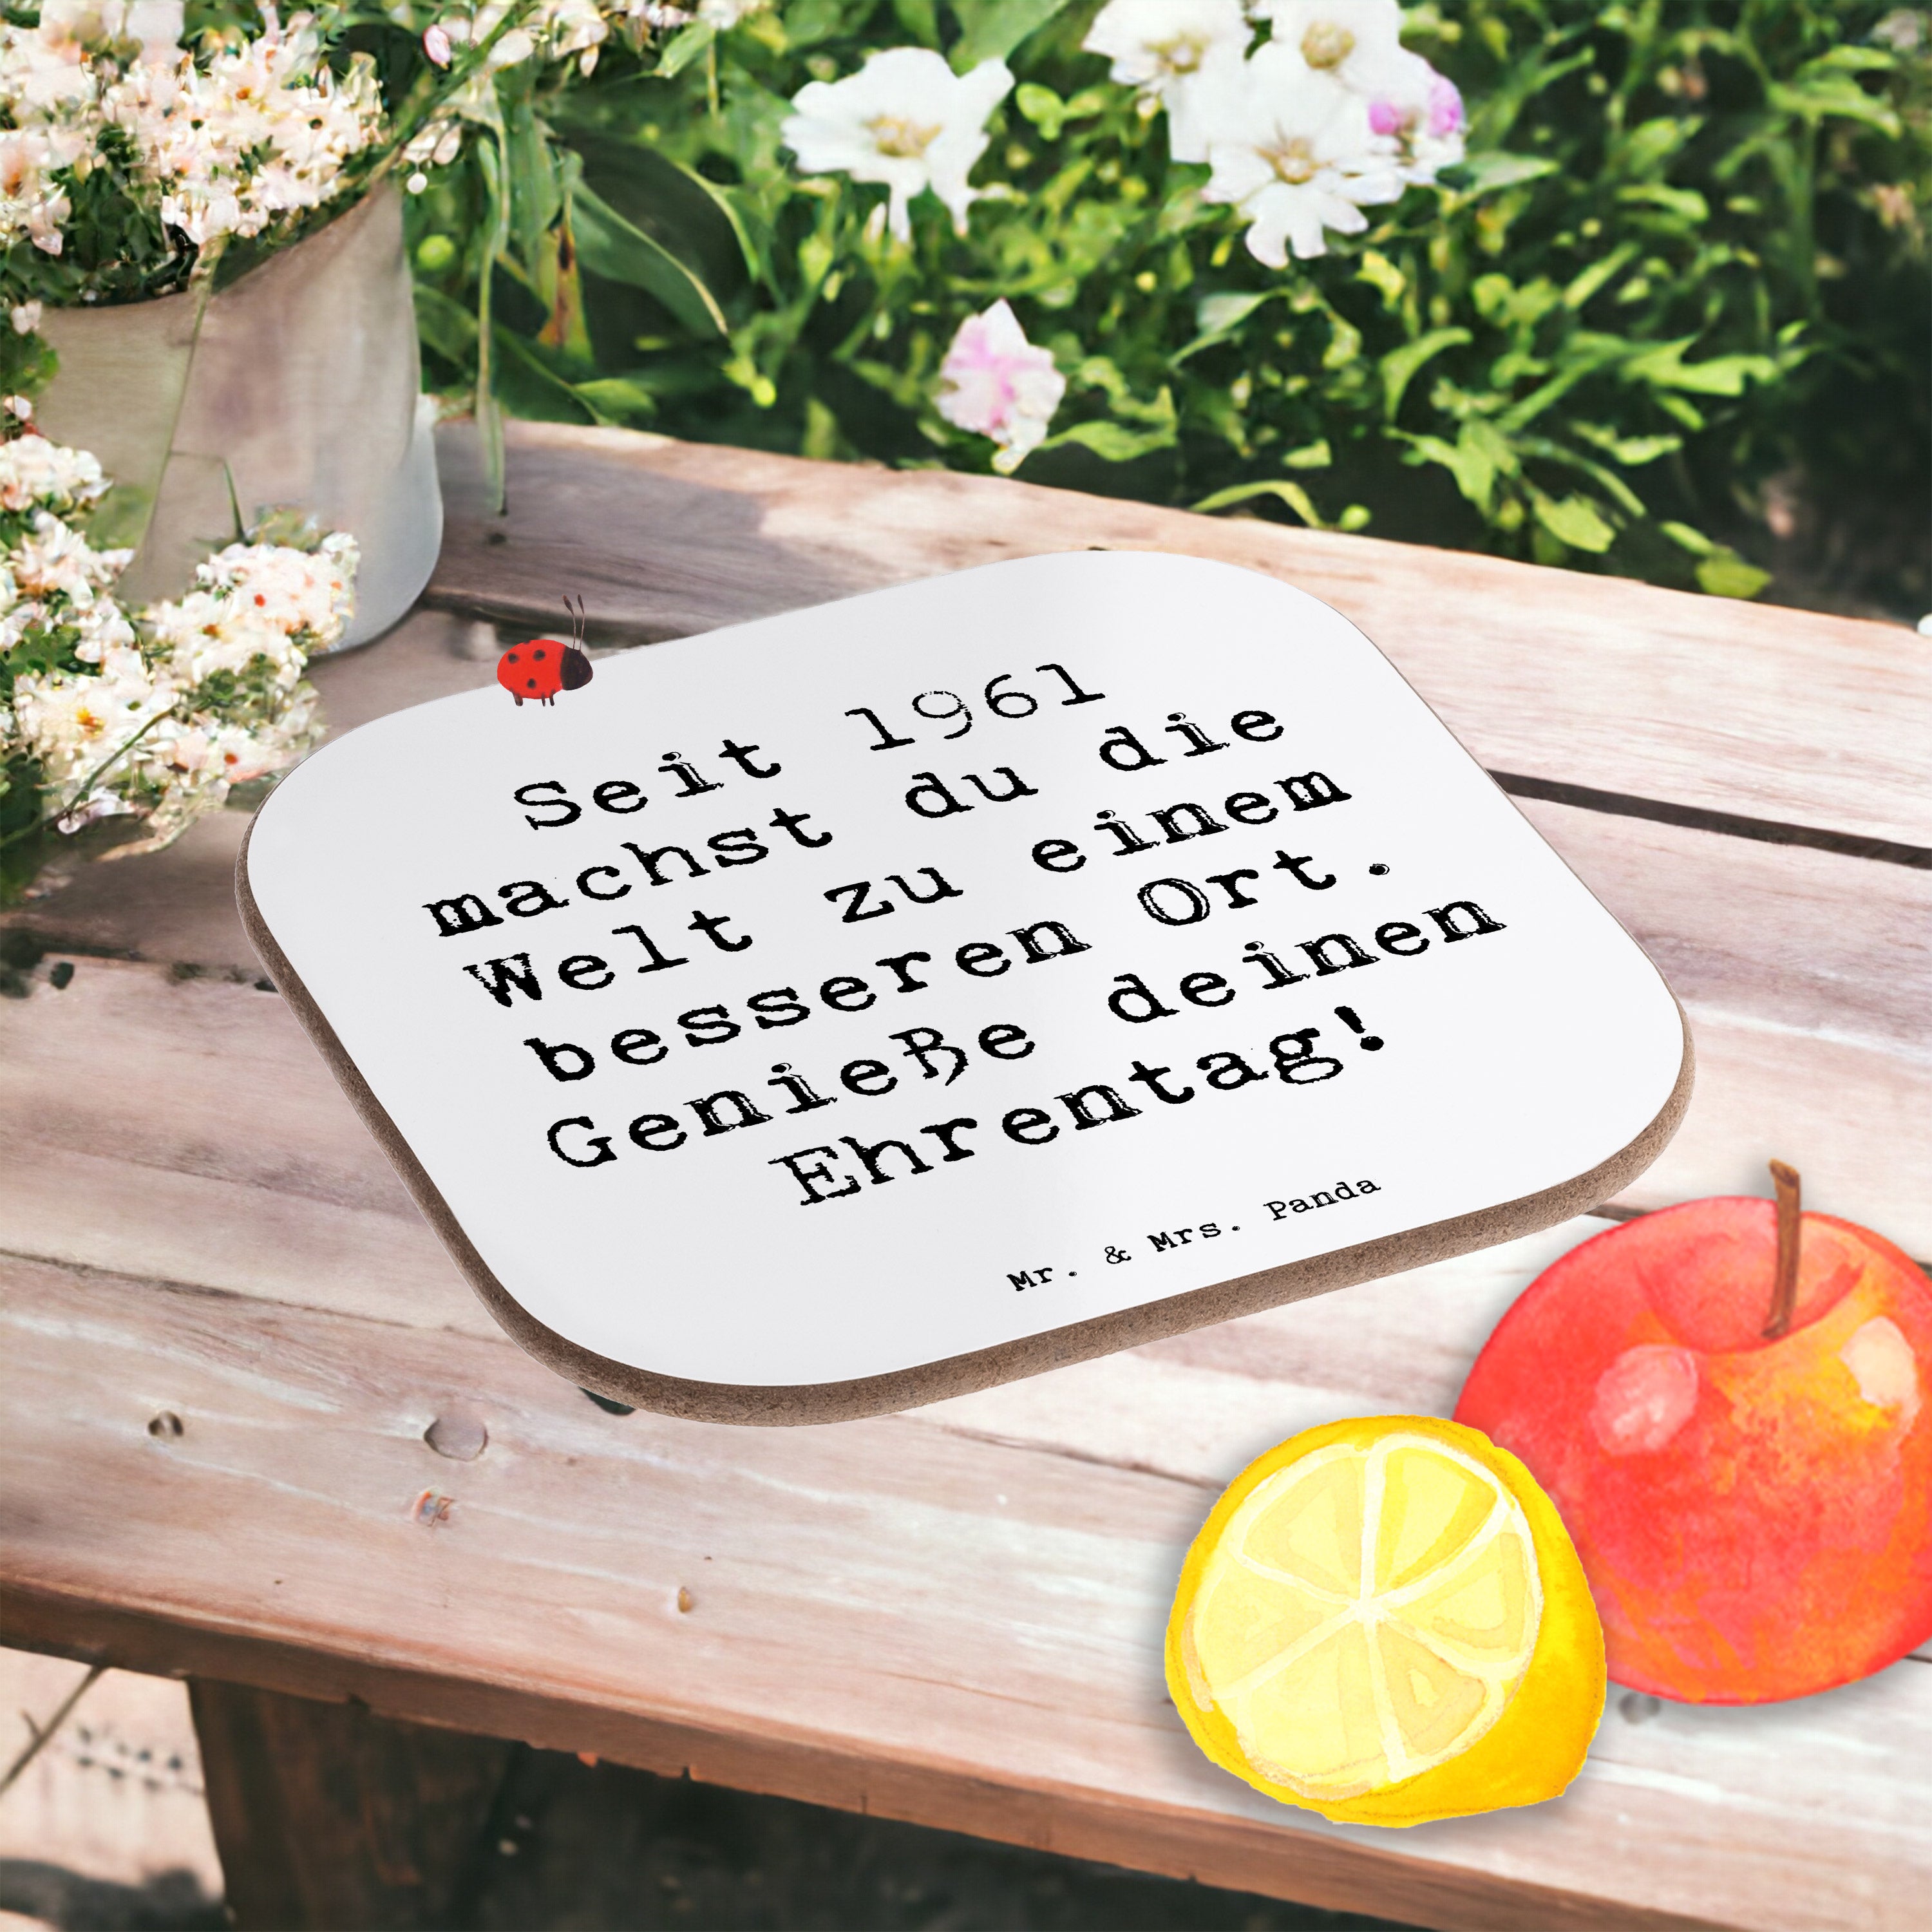 Seit 1961
machst du die
Welt zu einem
besseren Ort.
Genieße deinen
Ehrentag!
Mr. & Mrs. Panda